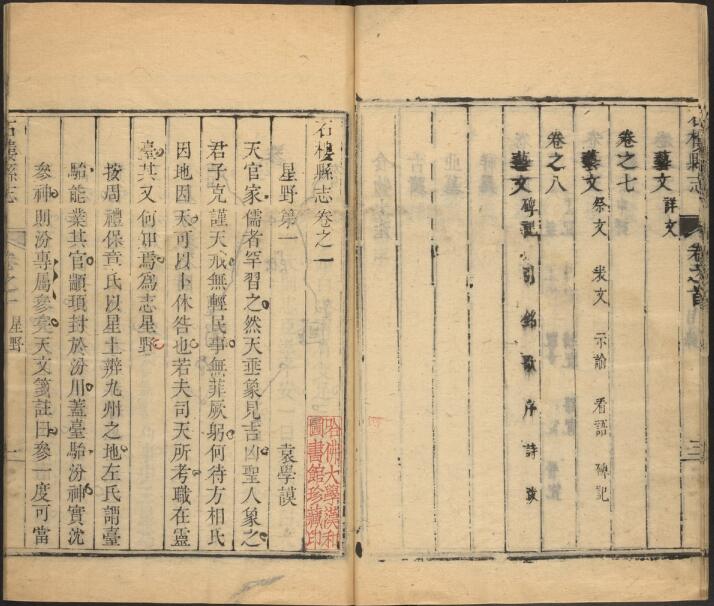 藝文 詳文
卷之七
藝文 祭文 表文 示諭 看語 碑記
卷之八
藝文 碑記 引 銘 歌 序 詩 跋
石樓縣志
卷之首
三
石樓縣志卷之一
星野第一
袁學謨
天官家儒者罕習之然天垂象見吉凶聖人象之
君子克謹天戒無輕民事無菲厥躬何待方相氏
因地因天可以卜休咎也若夫司天所考職在靈
臺其又何知焉爲志星野
按周禮保章氏以星土辨九州之地左氏謂臺
駘能業其官顓頊封於汾川蓋臺駘汾神實沈
參神則汾專屬參矣天文箋註曰參一度可當
石樓縣志
卷之一
星野
一
哈佛大學漢和
圖書館珍藏印